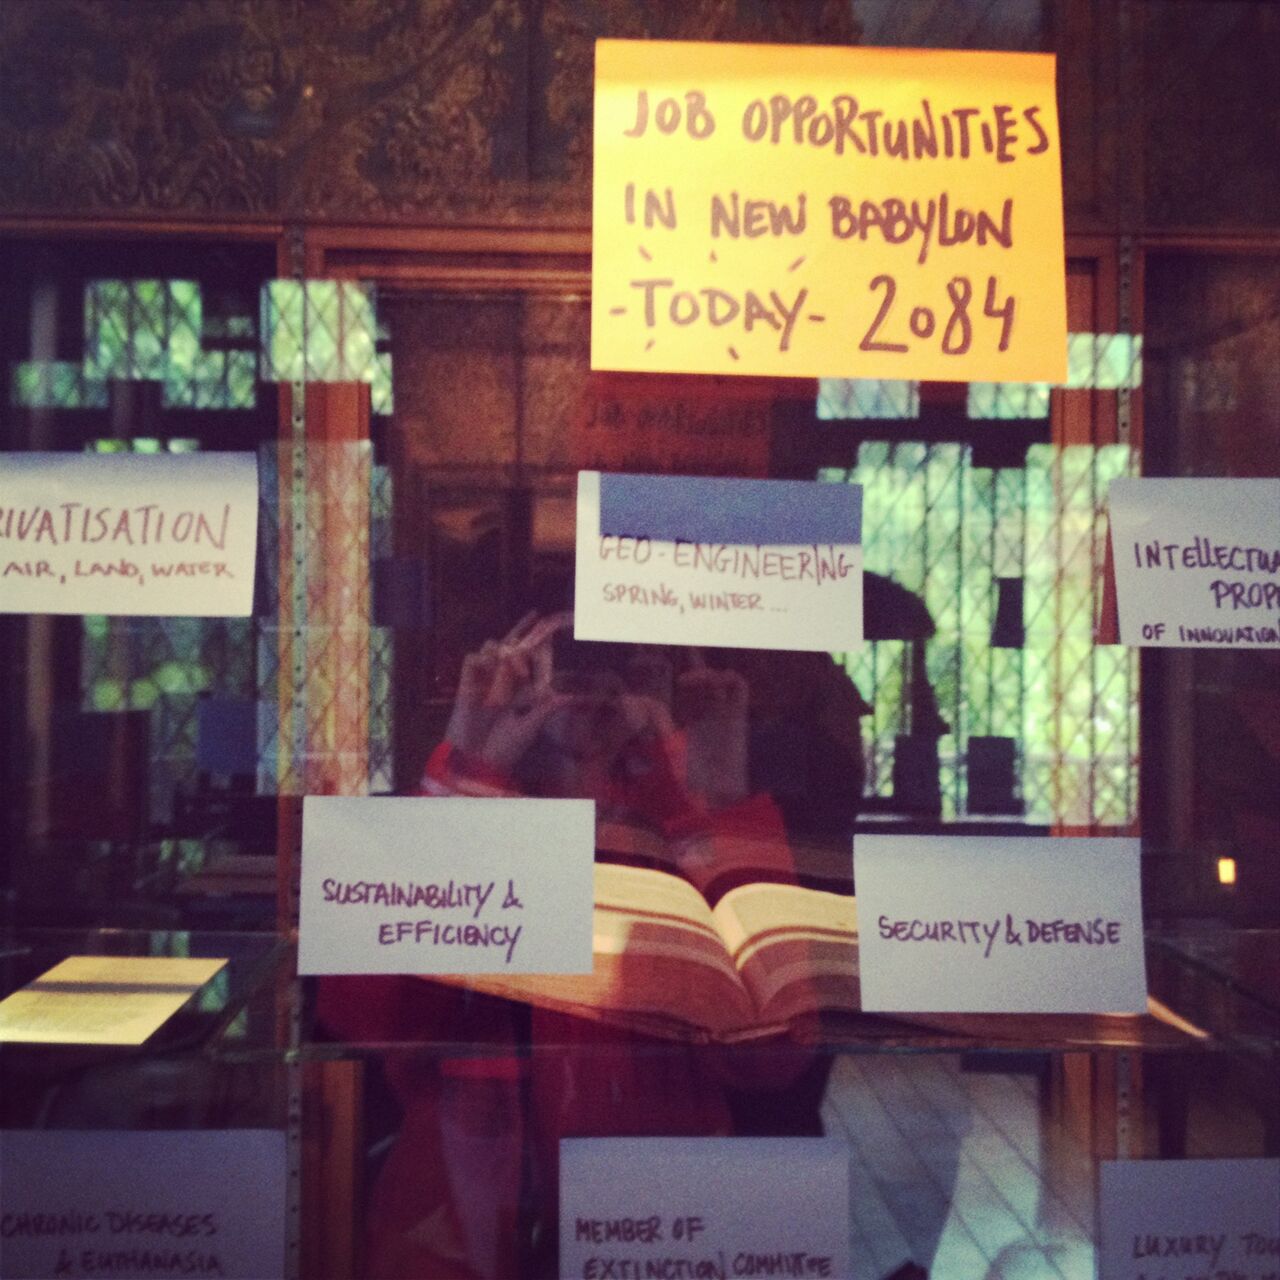 JOB OPPORTUNITIES
IN NEW BABYLON
-TODAY- 2084
RIVATISATION
AIR, LAND, WATER
GEO-ENGINEERING
SPRING, WINTER ...
INTELLECTUA
PROP
OF INNOVATION
SUSTAINABILITY &
EFFICIENCY
SECURITY & DEFENSE
CHRONIC DISEASES
& EUTHANASIA
MEMBER OF
EXTINCTION COMMITTEE
LUXURY